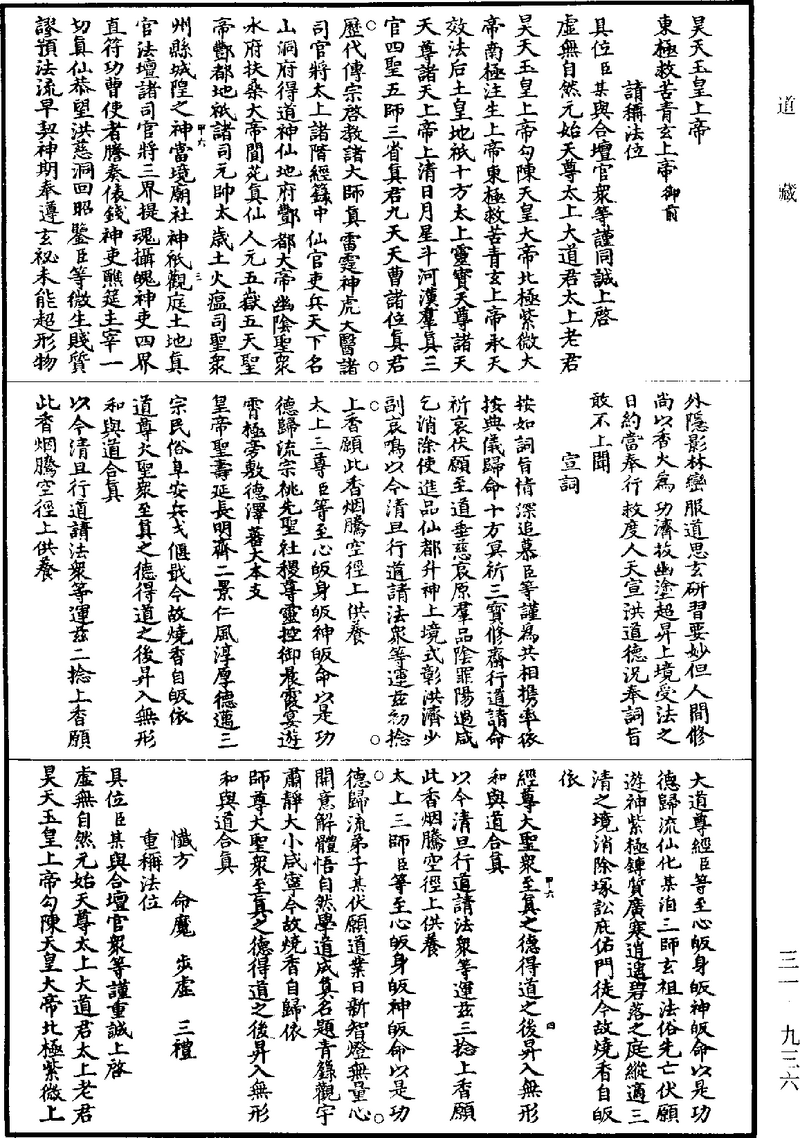 道藏
三一·九三六
昊天玉皇上帝
東極救苦青玄上帝御前
請稱法位
具位臣某與合壇官衆等謹同誠上啓
虛無自然元始天尊太上大道君太上老君
昊天玉皇上帝勾陳天皇大帝北極紫微大
帝南極注生上帝東極救苦青玄上帝承天
效法后土皇地祇十方太上靈寶天尊諸天
天尊諸天上帝上清日月星斗河漢羣真三
官四聖五師三省真君九天天曹諸位真君
歷代傳宗啓教諸大師真雷霆神虎大醫諸
司官將太上諸階經籙中仙官吏兵天下名
山洞府得道神仙地府酆都大帝幽陰聖衆
水府扶桑大帝閬苑真仙人元五嶽五天聖
帝酆都地祇諸司元帥太歲土火瘟司聖衆
州縣城隍之神當境廟社神祇觀庭土地真
甲六
三
官法壇諸司官將三界提魂攝魄神吏四界
直符功曹使者謄奏俵錢神吏醮筵主宰一
切真仙恭望洪慈洞回昭鑒臣等微生賤質
謬預法流早契神期奉遵玄祕未能超形物
外隱影林巒服道思玄研習要妙但人間修
尚以香火為功濟拔幽塗超昇上境受法之
日約當奉行救度人天宣洪道德況奉詞旨
敢不上聞
宣詞
按如詞旨情深追慕臣等謹為共相携率依
按典儀歸命十方冥祈三寶修齋行道請命
祈哀伏願至道垂慈哀原羣品陰罪陽過咸
乞消除使進品仙都升神上境式彰洪濟少
副哀鳴以今清旦行道請法衆等運茲初捻
上香願此香烟騰空徑上供養
太上三尊臣等至心皈身皈神皈命以是功
德歸流宗祧先聖社稷尊靈控御晨霞宴遊
霄極旁敷德澤蕃大本支
皇帝聖壽延長明齊二景仁風淳厚德邁三
宗民俗阜安兵戈偃戢今故燒香自皈依
道尊大聖衆至真之德得道之後昇入無形
和與道合真
以今清旦行道請法衆等運茲二捻上香願
此香烟騰空徑上供養
大道尊經臣等至心皈身皈神皈命以是功
德歸流仙化某洎三師玄祖法俗先亡伏願
遊神紫極鍊質廣寒逍遙碧落之庭縱適三
清之境消除塚訟庇佑門徒今故燒香自皈
依
經尊大聖衆至真之德得道之後昇入無形
甲六
四
和與道合真
以今清旦行道請法衆等運茲三捻上香願
此香烟騰空徑上供養
太上三師臣等至心皈身皈神皈命以是功
德歸流弟子某伏願道業日新智燈無量心
開意解體悟自然學道咸真名題青籙觀宇
肅靜大小咸寧今故燒香自歸依
師尊大聖衆至真之德得道之後昇入無形
和與道合真
懺方　命魔　步虛　三禮
重稱法位
具位臣某與合壇官衆等謹重誠上啓
虛無自然元始天尊太上大道君太上老君
昊天玉皇上帝勾陳天皇大帝北極紫微上